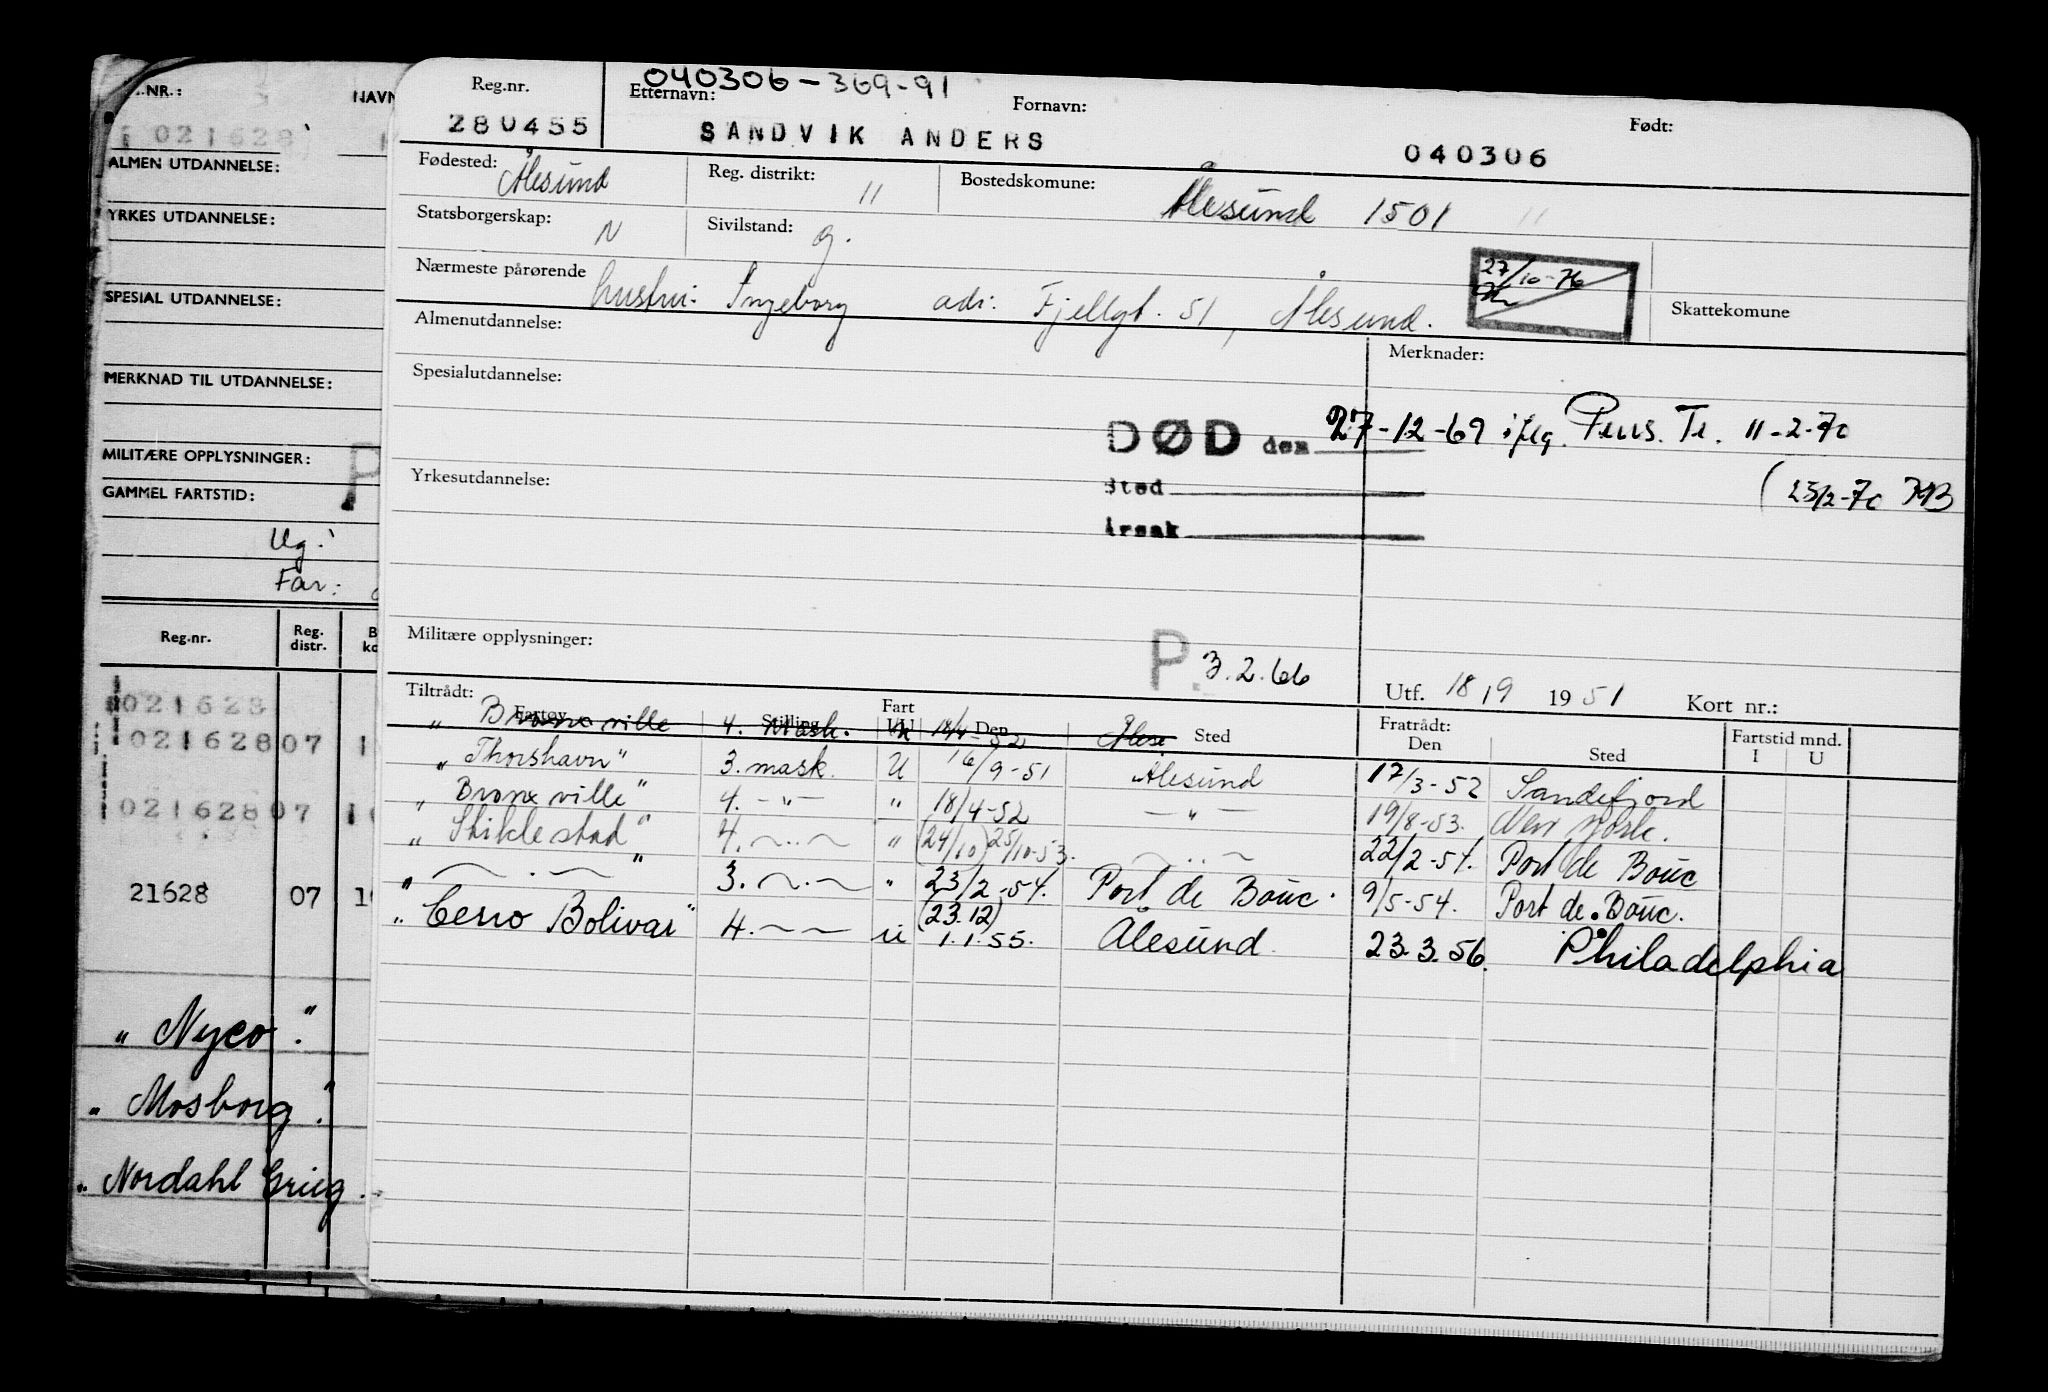 NR.:
NAVN
021628
ALMEN UTDANNELSE:
YRKES UTDANNELSE:
SPESIAL UTDANNELSE:
MERKNAD TIL UTDANNELSE:
MILITÆRE OPPLYSNINGER:
P
GAMMEL FARTSTID:
Ug.
Far:
Reg.nr.
Reg. distr.
021628
021628 07 1
021628 07
21628 07
"Nyco".
"Mosborg".
"Nordahl Grieg".
040306-369-91
Reg.nr. Etternavn: Fornavn: Født:
280455 SANDVIK ANDERS 040306
Fødested: Ålesund Reg. distrikt: 11 Bostedskomune: Ålesund 1501 11
Statsborgerskap: N Sivilstand: g.
27/10-76
Nærmeste pårørende hustru: Ingeborg adr: Fjellgt. 51, Ålesund.
Skattekomune
Almenutdannelse:
Merknader:
Spesialutdannelse:
DØD den 27-12-69 iflg. Pens. Tr. 11-2-70
(25/2-70 HB
Sted
Årsak
Yrkesutdannelse:
Militære opplysninger:
P. 3.2.66
Utf. 18/9 1951 Kort nr.:
Tiltrådt: Fratrådt: Fartstid mnd.
Fartøy Stilling Fart I/U Den Sted Den Sted I U
" Bronxville 4. mask. 18/4-52 Ålesu
"Thorshavn" 3. mask. U 16/9-51 Ålesund 17/3-52 Sandefjord
"Bronxville" 4. -"- " 18/4-52 -"- 19/8-53. New York.
"Stiklestad" 4. -"- " (24/10) 25/10-53. -"- 22/2-54. Port de Bouc
" -"- " 3. -"- " 23/2-54. Port de Bouc. 9/5-54. Port de Bouc.
"Cerro Bolivar" 4. -"- u (23.12) 1.1.55. Ålesund 23.3.56. Philadelphia